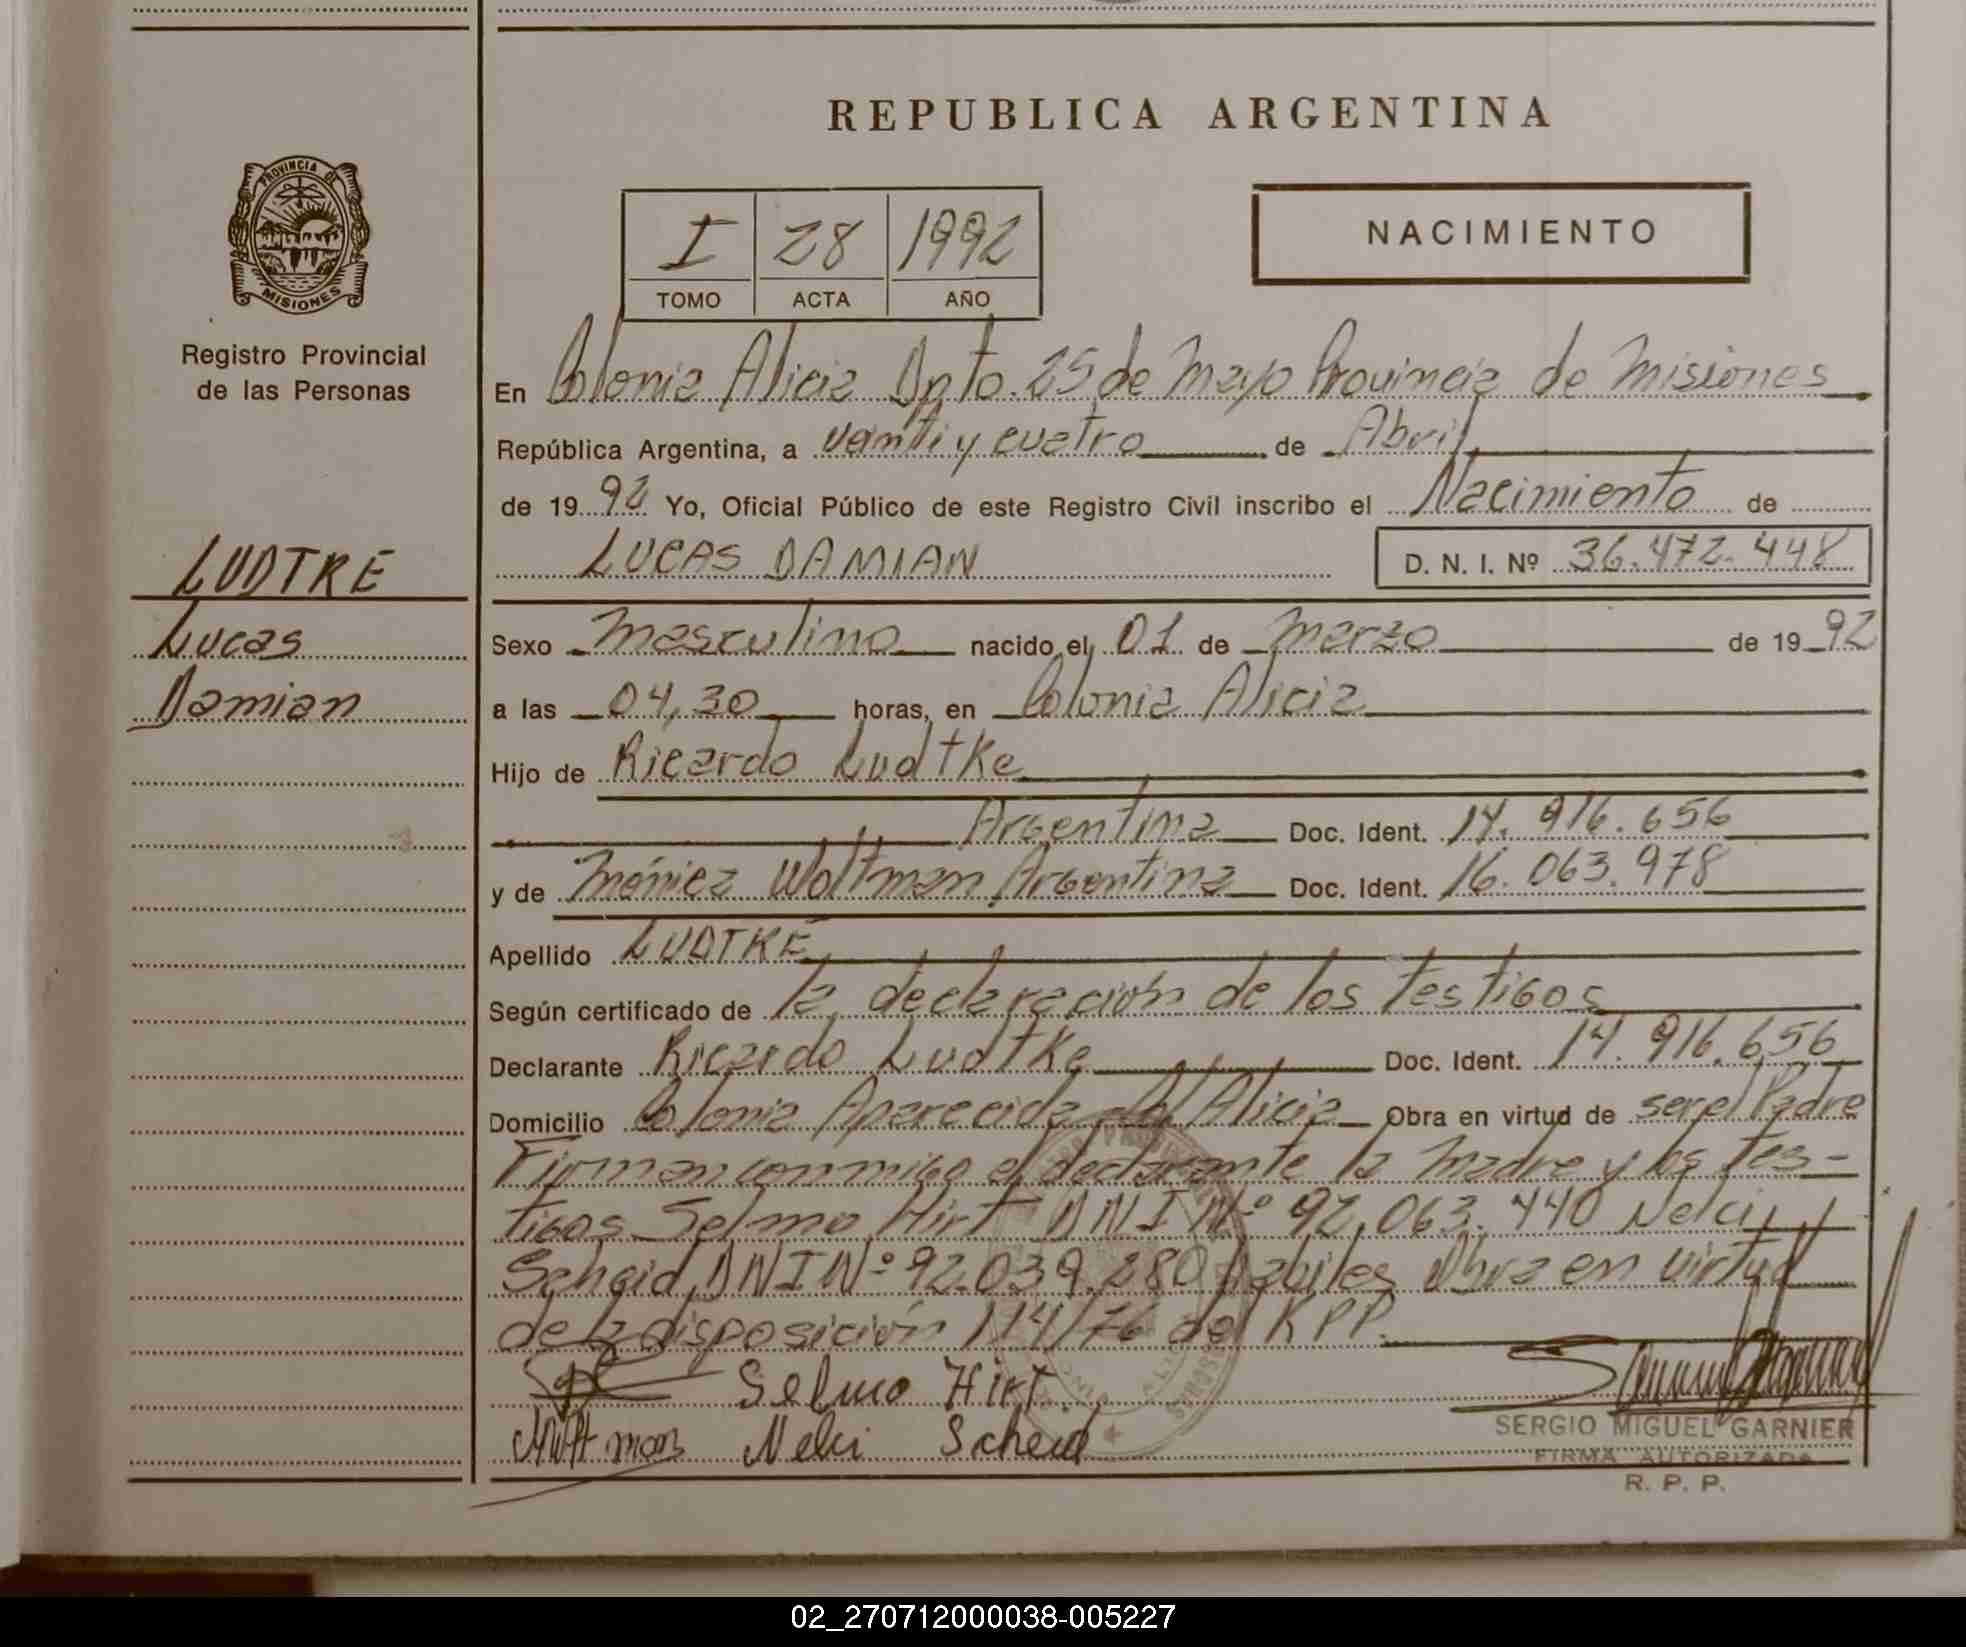 REPUBLICA ARGENTINA
PROVINCIA DE
MISIONES
Registro Provincial
de las Personas
I 28 1992
TOMO ACTA AÑO
NACIMIENTO
En Colonia Alicia Dpto. 25 de Mayo Provincia de Misiones
República Argentina, a veinti y cuatro de Abril
de 1992 Yo, Oficial Público de este Registro Civil inscribo el Nacimiento de
LUCAS DAMIAN D. N. I. Nº 36.472.448
LUDTKE
Lucas
Damian
Sexo Masculino nacido el 01 de Marzo de 1992
a las 04,30 horas, en Colonia Alicia
Hijo de Ricardo Ludtke
Argentina Doc. Ident. 14.916.656
y de Mónica Woltman Argentina Doc. Ident. 16.063.978
Apellido LUDTKE
Según certificado de la declaración de los testigos
Declarante Ricardo Ludtke Doc. Ident. 14.916.656
Domicilio Colonia Aparecida Alicia Obra en virtud de ser el Padre
Firman conmigo el declarante la Madre y los Tes-
tigos Selmo Hirt DNI Nº 92.063.440 Nelci
Scheid DNI Nº 92.039.280 habiles Obra en virtud
de la disposición 114/76 del RPP.
Selmo Hirt
Nelci Scheid
SERGIO MIGUEL GARNIER
FIRMA AUTORIZADA
R. P. P.
02_270712000038-005227